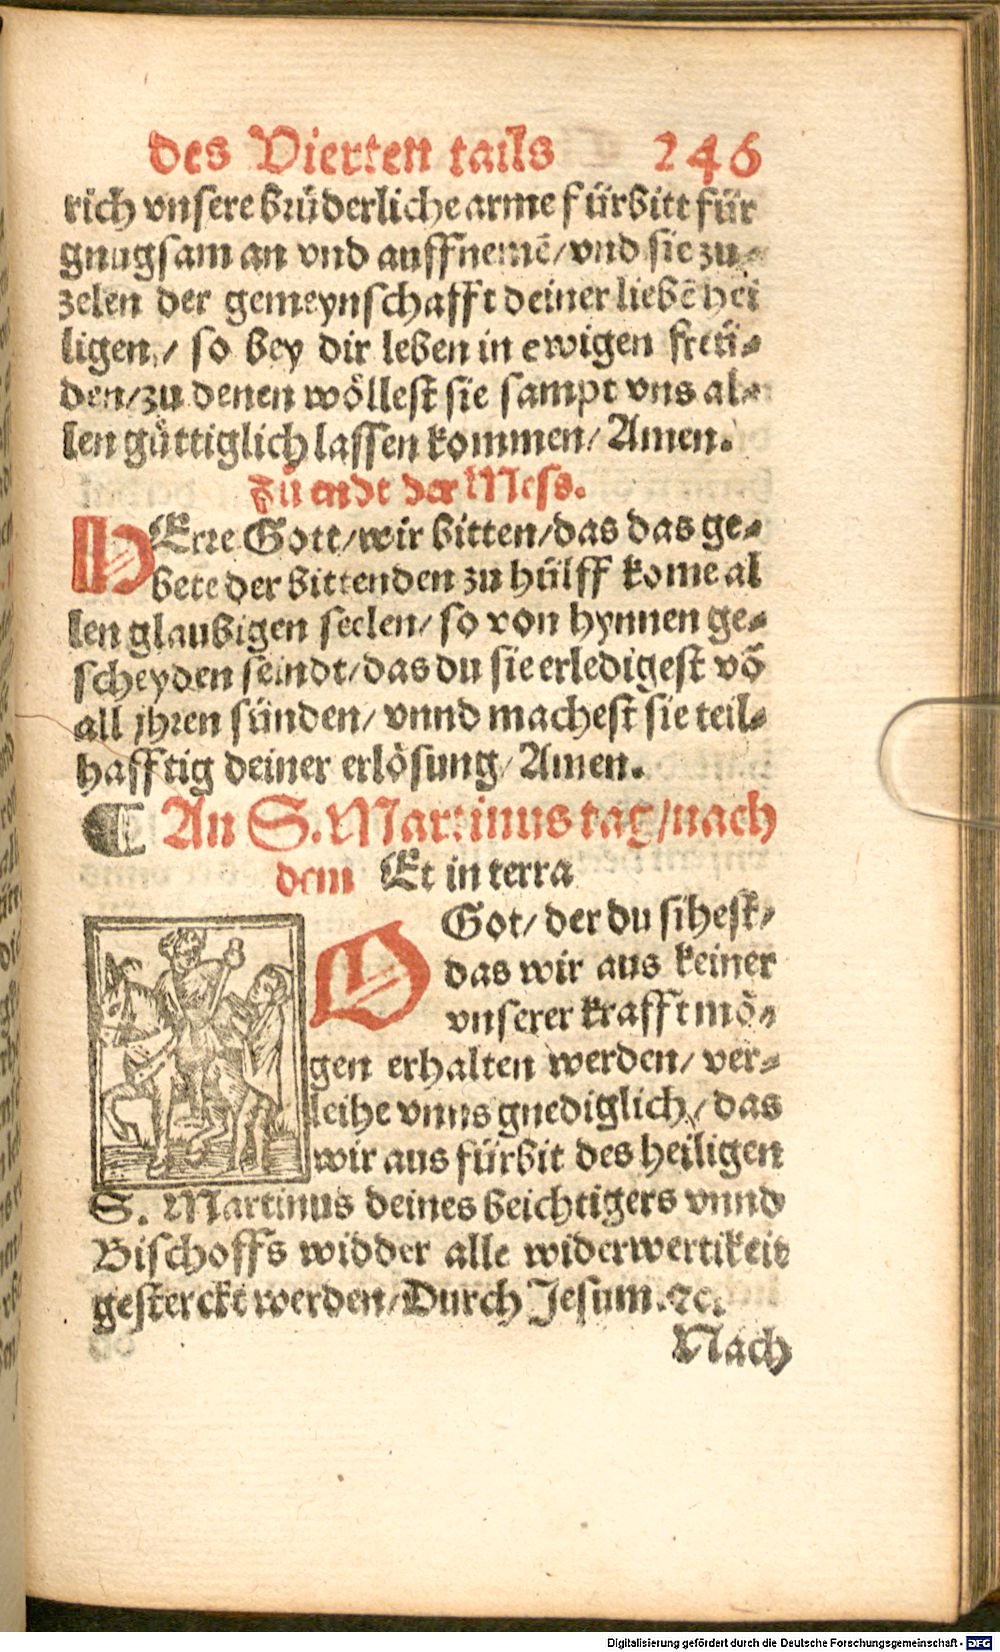 des Vierten tails 246
rich vnsere brüderliche arme fürbitt für
gnugsam an vnd auffnemē/ vnd sie zu-
zelen der gemeynschafft deiner liebē hei
ligen / so bey dir leben in ewigen freü-
den/ zu denen wöllest sie sampt vns al-
len güttiglich lassen kommen/ Amen.
Zů endt der Mess.
HErre Gott/ wir bitten/ das das ge-
bete der bittenden zu hülff kome al
len glaubigen seelen/ so von hynnen ge-
scheyden seindt/ das du sie erledigest vō
all jhren sünden/ vnnd machest sie teil-
hafftig deiner erlösung/ Amen.
¶ An S. Martinus tag/ nach
dem Et in terra
O Got/ der du sihest/
das wir aus keiner
vnserer krafft mö-
gen erhalten werden/ ver-
leihe vnns gnediglich/ das
wir aus fürbit des heiligen
S. Martinus deines beichtigers vnnd
Bischoffs widder alle widerwertikeit
gesterckt werden/ Durch Jesum. ꝛc.
Nach
Digitalisierung gefördert durch die Deutsche Forschungsgemeinschaft - DFG